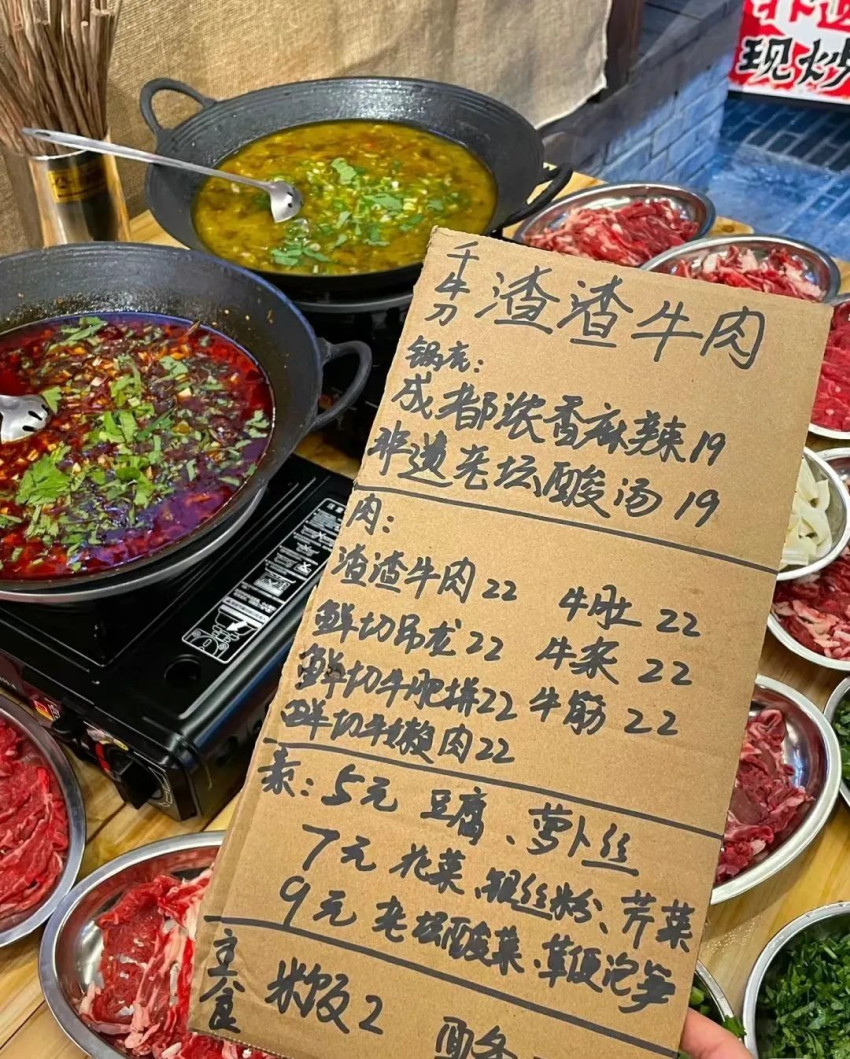 现炒
千牛刀 渣渣牛肉
锅底：
成都浓香麻辣19
非遗老坛酸汤19
肉：
渣渣牛肉22 牛肚22
鲜切吊龙22 牛杂22
鲜切牛肥拼22 牛筋22
鲜切牛嫩肉22
素：5元 豆腐、萝卜丝
7元 花菜、银丝粉、芹菜
9元 老坛酸菜、草便泡笋
主食 米饭2 面条